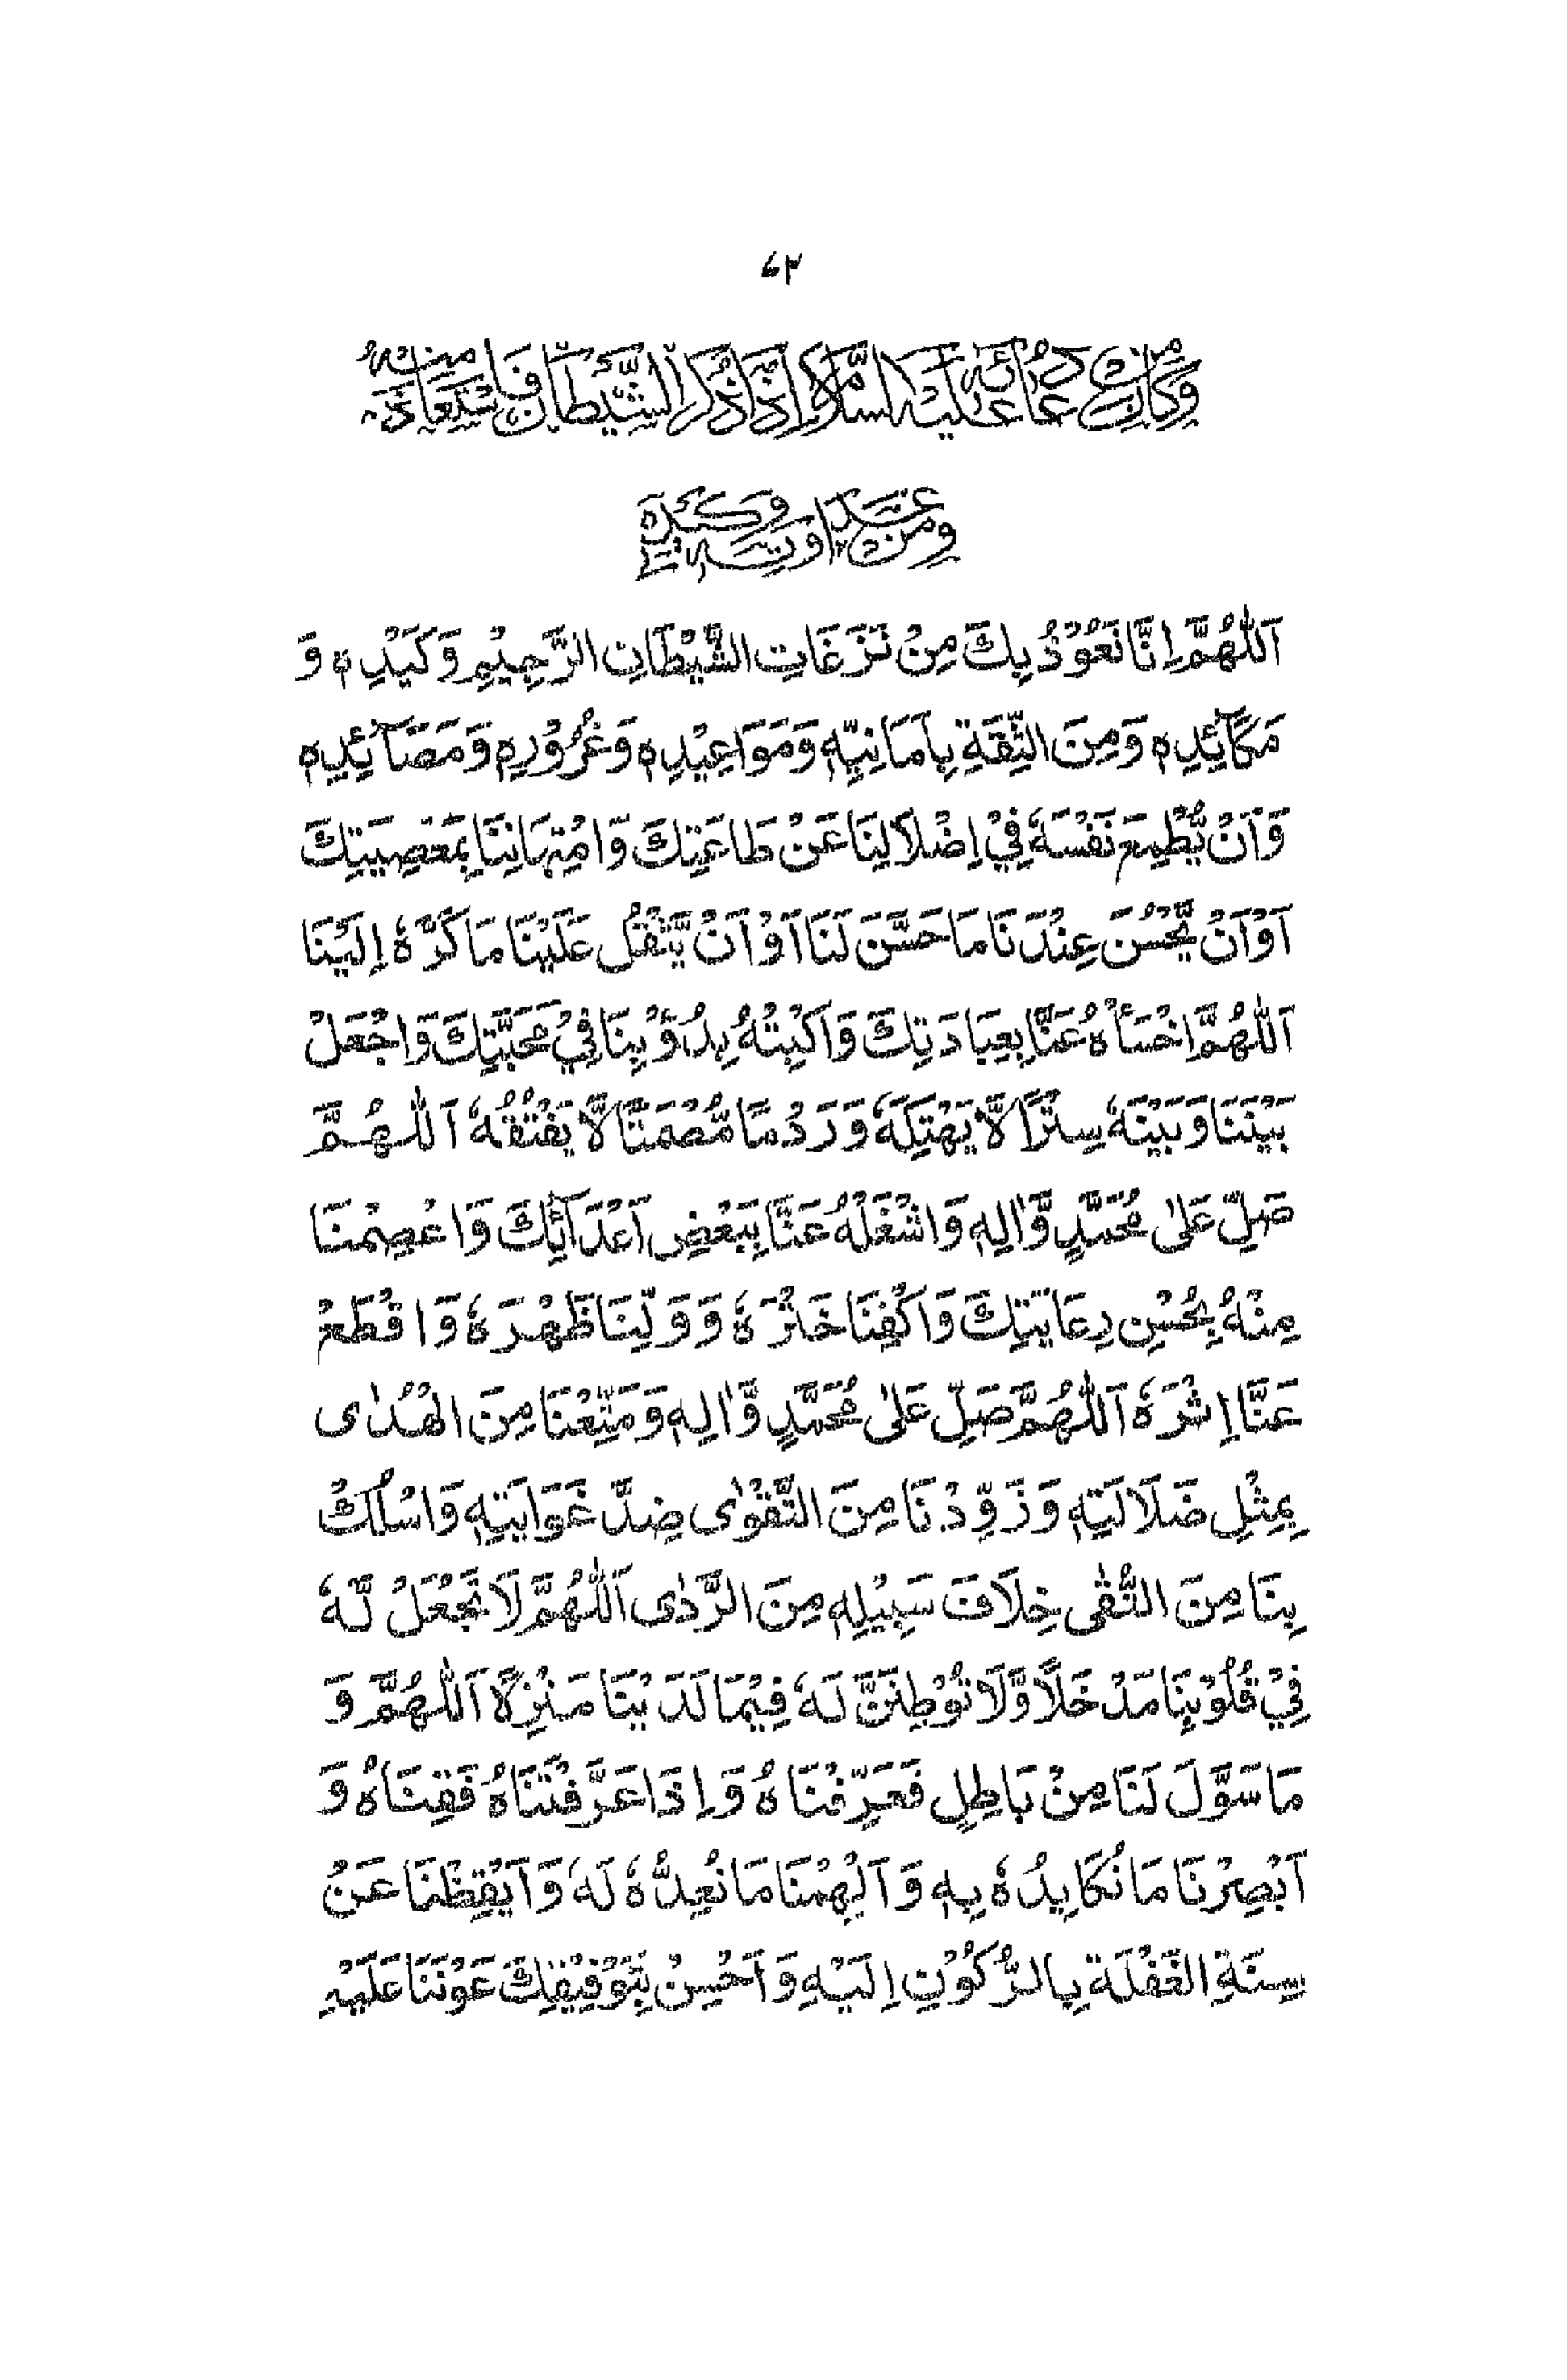 ٦٢
وَكَانَ مِنْ دُعَائِهٖ عَلَيْهِ السَّلَامُ اِذَا ذُكِرَ الشَّيْطَانُ فَاسْتَعَاذَ مِنْهُ
وَمِنْ عَدَاوَتِهٖ وَكَيْدِهٖ
اَللّٰهُمَّ اِنَّا نَعُوْذُ بِكَ مِنْ نَزَغَاتِ الشَّيْطَانِ الرَّجِيْمِ وَكَيْدِهٖ وَ
مَكَآئِدِهٖ وَمِنَ الثِّقَةِ بِاَمَانِيِّهٖ وَمَوَاعِيْدِهٖ وَغُرُوْرِهٖ وَمَصَآئِدِهٖ
وَاَنْ يُّطْمِعَ نَفْسَهٗ فِيْ اِضْلَالِنَا عَنْ طَاعَتِكَ وَامْتِهَانِنَا بِمَعْصِيَتِكَ
اَوْ اَنْ يَّحْسُنَ عِنْدَنَا مَا حَسَّنَ لَنَا اَوْ اَنْ يَّثْقُلَ عَلَيْنَا مَا كَرَّهَ اِلَيْنَا
اَللّٰهُمَّ اخْسَأْهُ عَنَّا بِعِبَادَتِكَ وَاكْبِتْهُ بِدُؤُبِنَا فِيْ مَحَبَّتِكَ وَاجْعَلْ
بَيْنَنَا وَبَيْنَهٗ سِتْرًا لَّا يَهْتِكُهٗ وَرَدْمًا مُّصْمَتًا لَّا يَفْتُقُهٗ اَللّٰهُمَّ
صَلِّ عَلٰى مُحَمَّدٍ وَّاٰلِهٖ وَاشْغَلْهُ عَنَّا بِبَعْضِ اَعْدَآئِكَ وَاعْصِمْنَا
مِنْهُ بِحُسْنِ رِعَايَتِكَ وَاكْفِنَا خَتْرَهٗ وَوَلِّنَا ظَهْرَهٗ وَاقْطَعْ
عَنَّا اِثْرَهٗ اَللّٰهُمَّ صَلِّ عَلٰى مُحَمَّدٍ وَّاٰلِهٖ وَمَتِّعْنَا مِنَ الْهُدٰى
بِمِثْلِ ضَلَالَتِهٖ وَزَوِّدْنَا مِنَ التَّقْوٰى ضِدَّ غَوَايَتِهٖ وَاسْلُكْ
بِنَا مِنَ التُّقٰى خِلَافَ سَبِيْلِهٖ مِنَ الرَّدٰى اَللّٰهُمَّ لَا تَجْعَلْ لَّهٗ
فِيْ قُلُوْبِنَا مَدْخَلًا وَّلَا تُوْطِنَنَّ لَهٗ فِيْمَا لَدَيْنَا مَنْزِلًا اَللّٰهُمَّ وَ
مَا سَوَّلَ لَنَا مِنْ بَاطِلٍ فَعَرِّفْنَاهُ وَاِذَا عَرَّفْتَنَاهُ فَقِنَاهُ وَ
اَبْصِرْنَا مَا نُكَايِدُهٗ بِهٖ وَاَلْهِمْنَا مَا نُعِدُّهٗ لَهٗ وَاَيْقِظْنَا عَنْ
سِنَةِ الْغَفْلَةِ بِالرُّكُوْنِ اِلَيْهِ وَاَحْسِنْ بِتَوْفِيْقِكَ عَوْنَنَا عَلَيْهِ